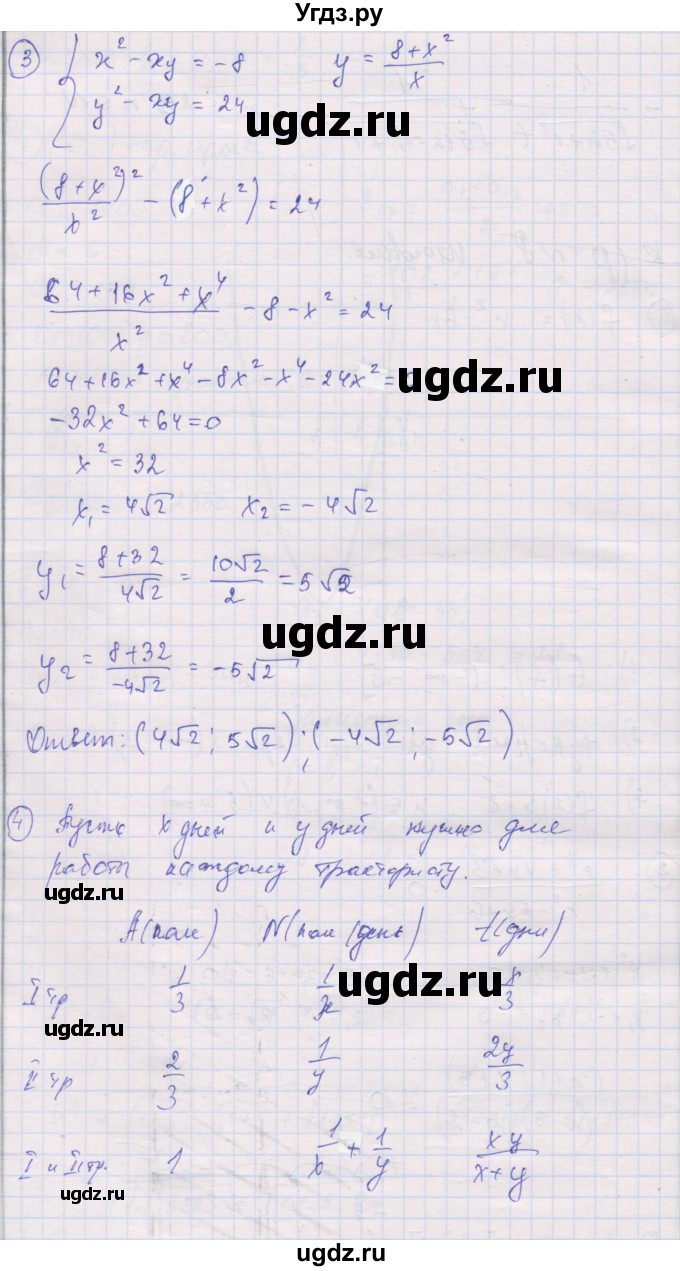 Угдз.ру
3 { x² - xy = -8 y = (8+x²)/x
y² - xy = 24
ugdz.ru
(8+x²)²/x² - (8+x²) = 24
(64+16x²+x⁴)/x² - 8 - x² = 24
64+16x²+x⁴-8x²-x⁴-24x²=0
ugdz.ru
-32x²+64=0
x² = 32
x₁ = 4√2 x₂ = -4√2
y₁ = (8+32)/(4√2) = 10√2/2 = 5√2
ugdz.ru
y₂ = (8+32)/(-4√2) = -5√2
Ответ: (4√2; 5√2); (-4√2; -5√2)
4 Пусть x дней и y дней нужно для
работы каждому трактористу.
ugdz.ru
A(поле) N(поле/день) t(дни)
I тр 1/3 1/x x/3
ugdz.ru
ugdz.ru
II тр 2/3 1/y 2y/3
I и II тр. 1 1/x + 1/y xy/(x+y)
ugdz.ru
ugdz.ru